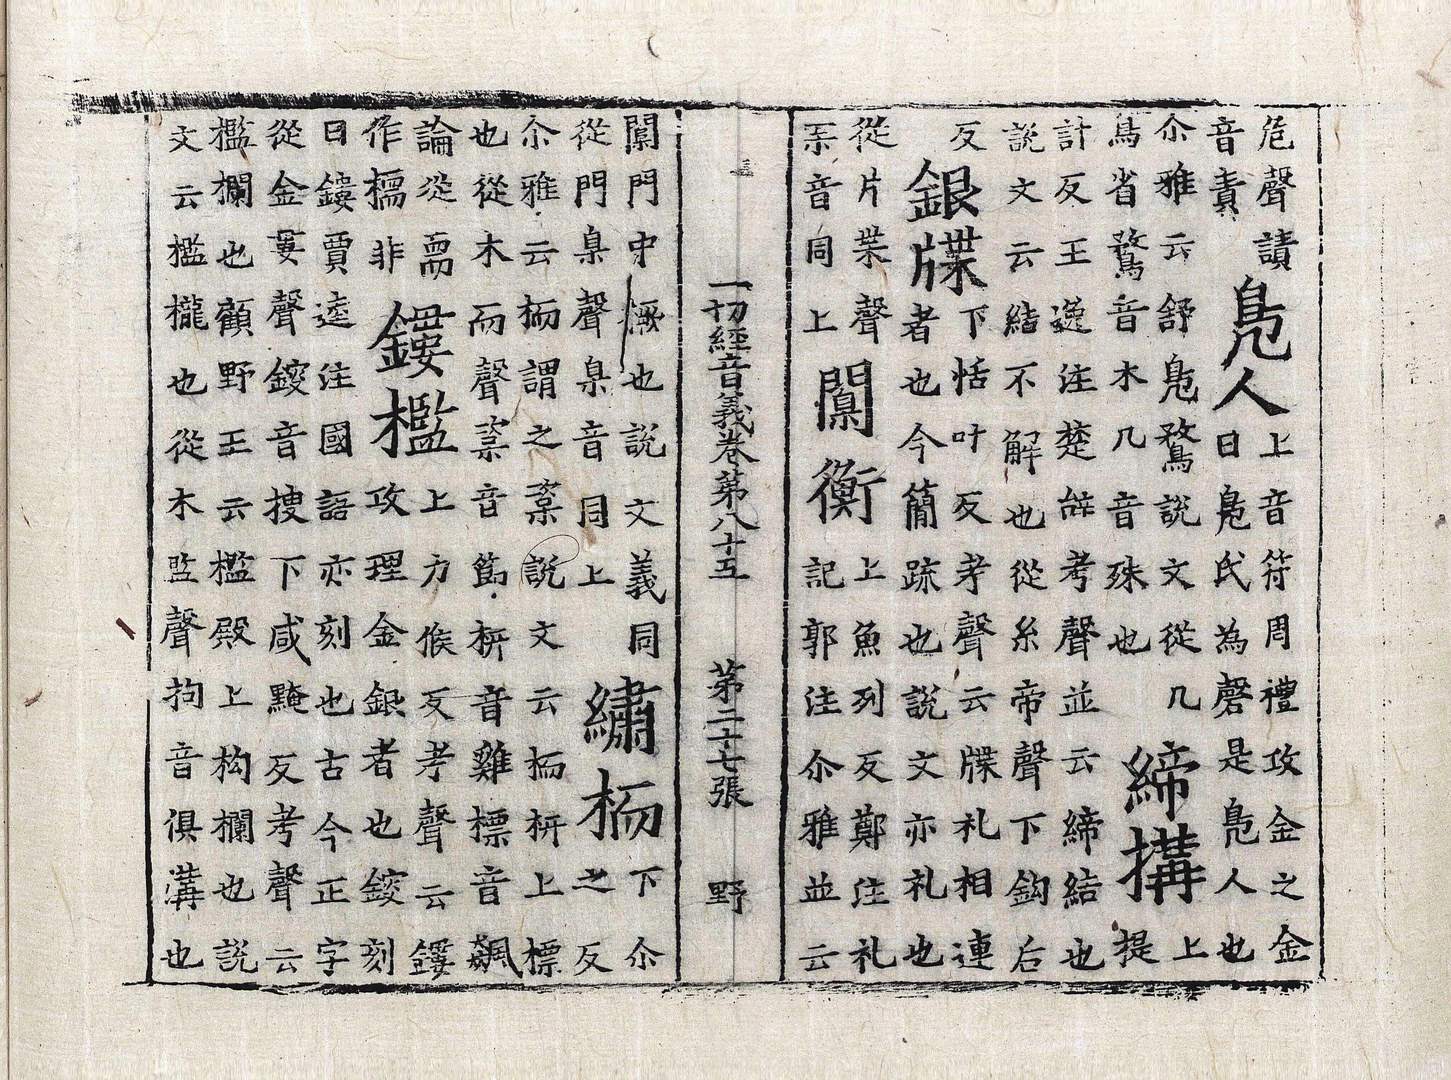 危聲讀
音責
鳧人
上音符周禮攻金之金
曰鳧氏為磬是鳧人也
尒雅云舒鳧鶩說文從几
鳥省鶩音木几音殊也
締搆
上
提
計反王逸注楚辝考聲並云締結也
說文云結不解也從糸帝聲下鈎后
反
銀牒
下恬叶反考聲云牒札相連
者也今簡䟽也說文亦札也
從片枼聲
枼音同上
闑衡
上魚列反鄭注礼
記郭注尒雅並云
一切經音義卷第八十五 第二十七張 野
闑門中橛也說文義同
從門臬聲臬音同上
繡栭
下尒
之反
尒雅云栭謂之楶說文云栭枅上標
也從木而聲楶音節枅音雞標音飆
論從需
作檽非
鏤檻
上方候反考聲云鏤
攻理金銀者也鋑刻
曰鏤賈逵注國語亦刻也古今正字
從金婁聲鋑音搜下咸黤反考聲云
檻欄也顧野王云檻殿上构欄也說
文云檻櫳也從木監聲拘音俱溝也